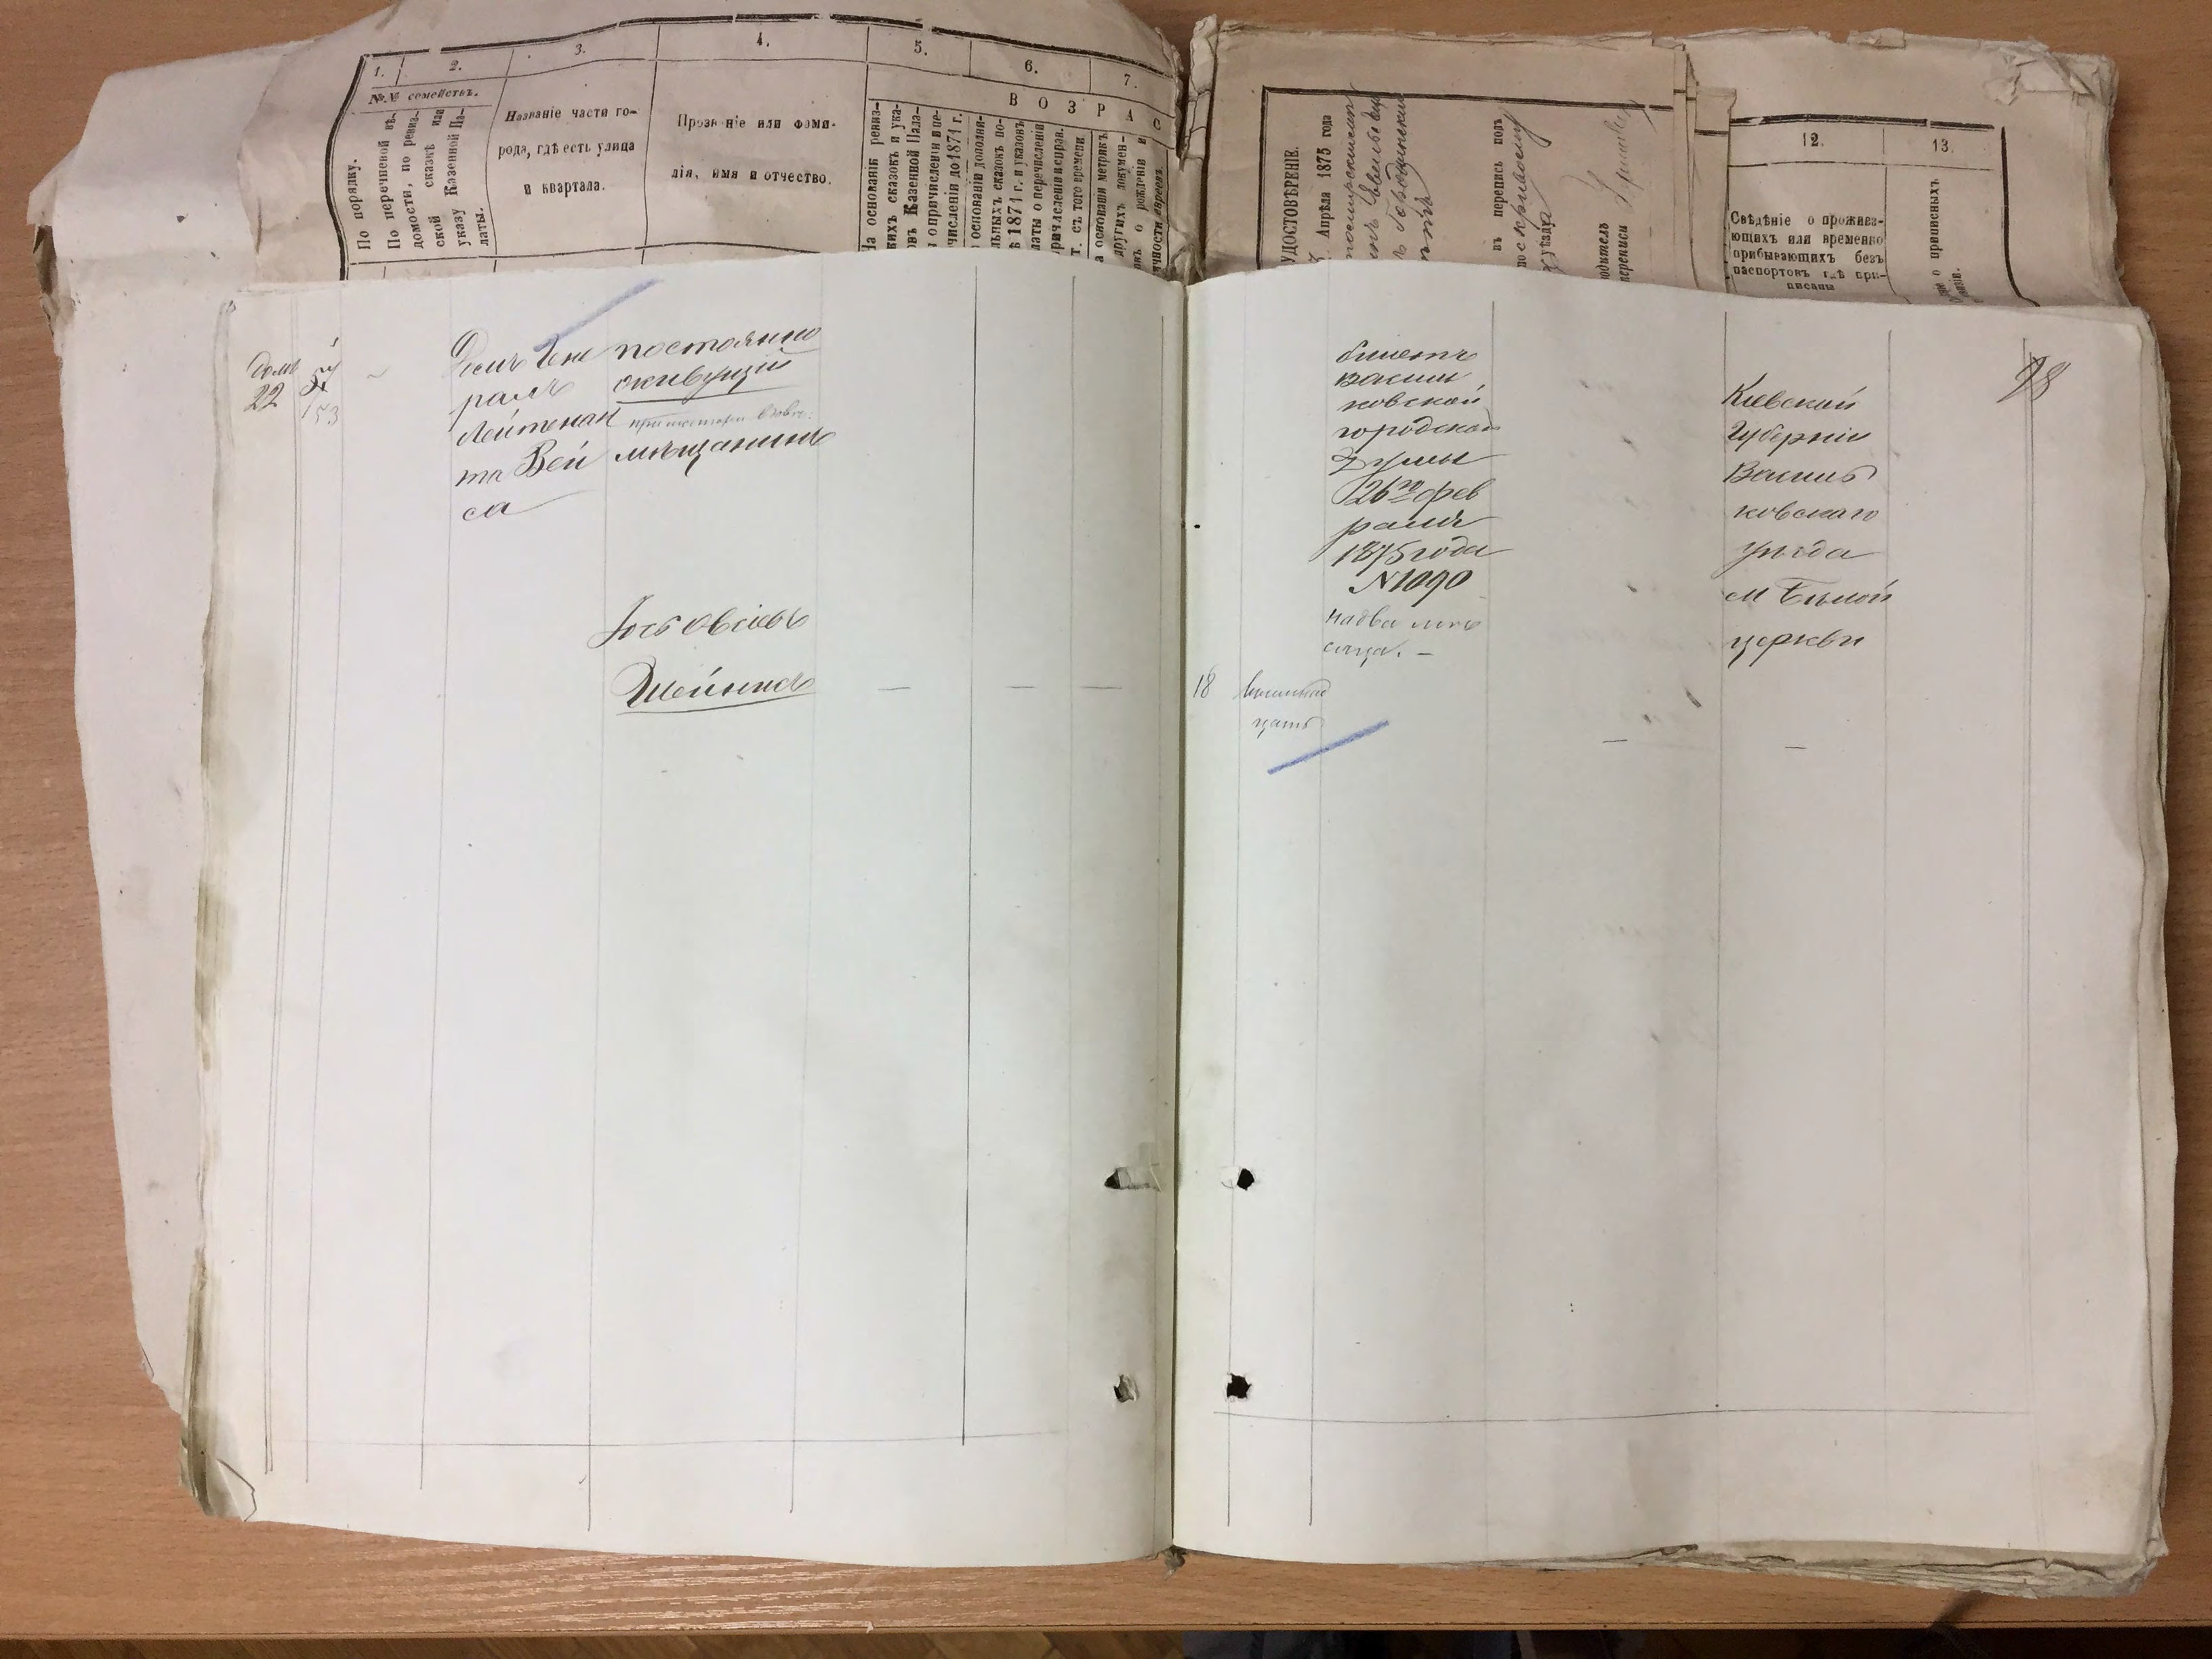 1.
2.
3.
4.
5.
6.
7.
№№ семействъ.
ВОЗРАС
По порядку.
По перечневой вѣ-
домости, по ревиз-
ской сказкѣ или
указу Казенной Па-
латы.
Названіе части го-
рода, гдѣ есть улица
и квартала.
Прозваніе или фами-
лія, имя и отчество.
На основаніи ревиз-
кихъ сказокъ и ука-
овъ Казенной Пала-
о причисленіи и пе-
численіи до 1871 г.
основаніи дополни-
льныхъ сказокъ по-
ѣ 1871 г. и указовъ
латы о перечисленіи
т. съ того времени
основаніи метрикъ
другихъ докумен-
о рожденіи и
ичности евреевъ.
УДОСТОВѢРЕНІЕ.
Апрѣля 1875 года
въ перепись полъ
уѣзда
переписи
12.
13.
Свѣдѣніе о прожива-
ющихъ или временно
прибывающихъ безъ
паспортовъ гдѣ при-
писаны
о приписныхъ
Домъ
22
57
153
Домъ Гене
ралъ
Лейтенан
та Вей
са
постоянно
живущій
мѣщанинъ
Іось Овсіевъ
Шейнисъ
18
восемнад
цать
билетъ
Василь
ковской
городской
Думы
26го фев
раля
1875 года
№ 1090
на два мѣ
сяца. —
Кіевской
Губерніи
Василь
ковскаго
уѣзда
м Бѣлой
церкви
98